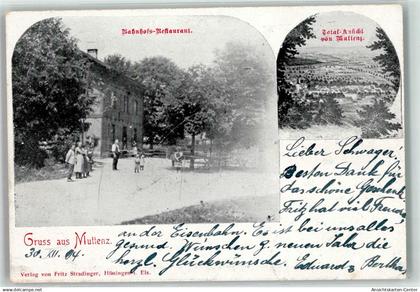 Bahnhofs-Restaurant.
Total-Ansicht
von Muttenz.
Lieber Schwager!
Besten Dank für
das schöne Geschenk
Fritz hat viel Freude
an der Eisenbahn. Es ist bei uns alles
gesund. Wünschen z. neuen Jahr die
herzl. Glückwünsche. Eduard & Bertha
Gruss aus Muttenz.
30. XII. 04
Verlag von Fritz Stradinger, Hüningen i. Els.